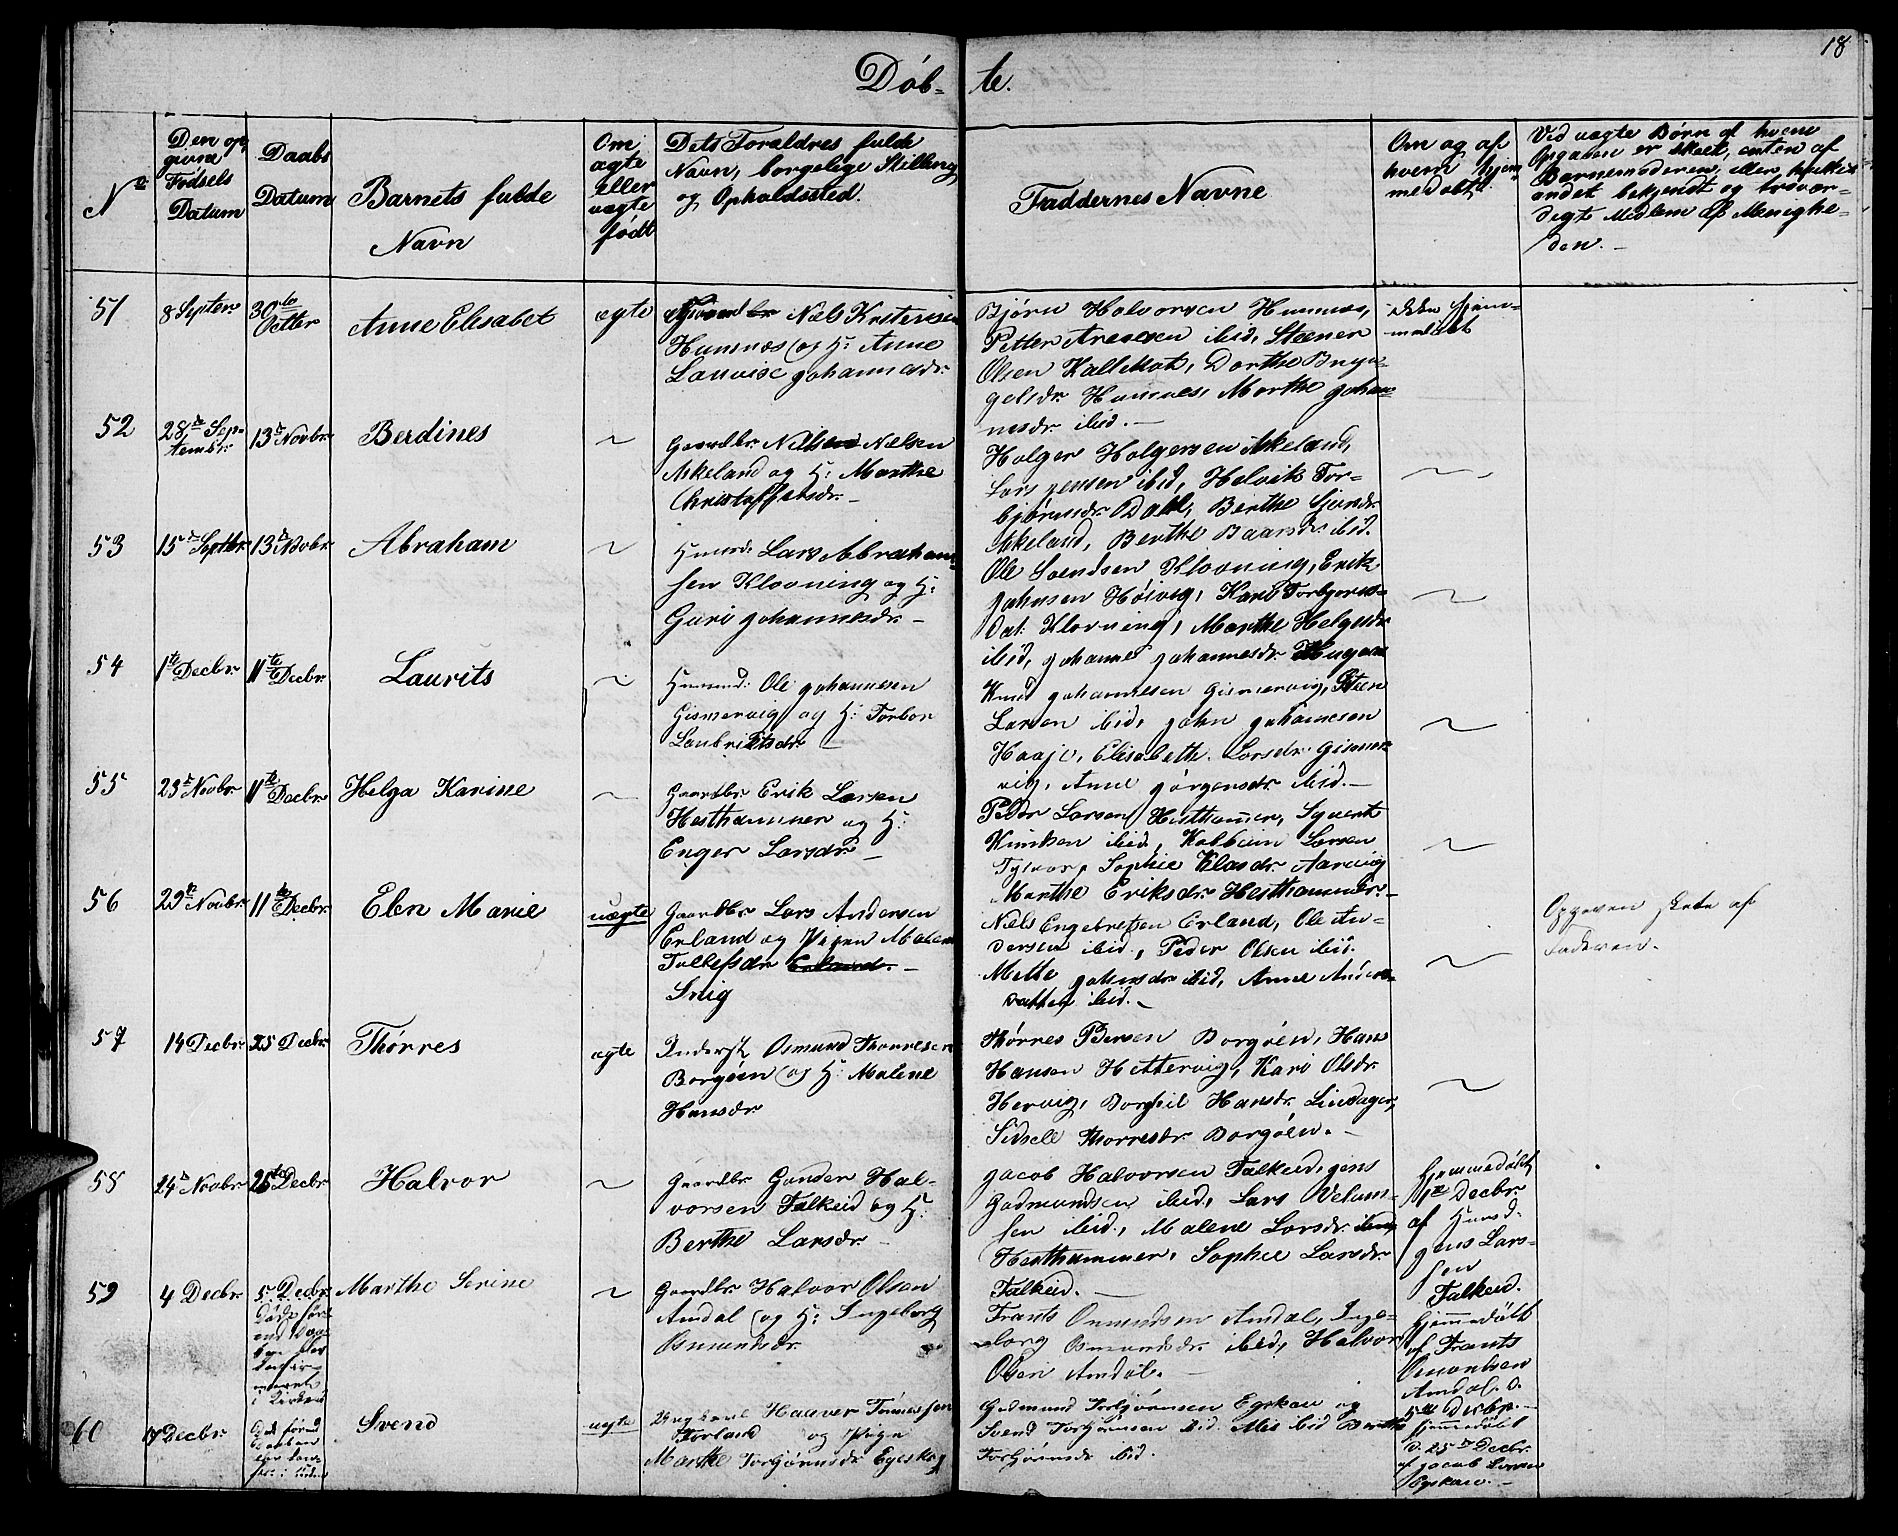 18
Døb- te.
No
Den op
givne
Fødsels
Datum
Daabs
Datum
Barnets fulde
Navn
Om
ægte
eller
uægte
født
Dets Forældres fulde
Navn, borgelige Stilling
og Opholdssted.
Faddernes Navne
Om og af
hvem hjem
medøbt.
Ved uægte Børn af hvem
Opgaven er skeet, enten af
Barnemoderen, eller hvilket
andet bekjendt og trovær-
digt Medlem af Menighe-
den.
51
8 Septem
30te
Octbr
Anne Elisabet
ægte
Niels Kristensen
Humnæs og H: Anne
Lauvise Johannesdr.
Bjørn Halvorsen Humnæs,
Petter Arnesen ibid, Steener
Olsen Kallstøt, Dorthe Bryn-
gelsdr. Humnes, Marthe Johan-
nesdr. ibid.
ikke hjem-
medøbt
52
28de Sep-
tembr.
13de Novbr.
Berdines
~
Gaardbr. Niels Nielsen
Akeland og H: Marthe
Christoffersdr.
Holger Holgersen Akeland,
Lars Jensen ibid, Helvik Tor-
bjørnsdr. Dahl, Berthe Sjursdr
Akeland, Berthe Baarsdr. ibid.
~
53
15de Septbr.
13de Novbr.
Abraham
~
Huusmd. Lars Abraham-
sen Klovning og H:
Guri Johannesdr.
Ole Svendsen Klovning, Erik
Johnsen Høivig, Kari Torbjørns-
Dat. Klovning, Marthe Helgesdr
ibid, Johanne Johannesdr. Hugaas
~
54
1te Decbr.
11te Decbr.
Laurits
~
Huusmd: Ole Johannesen
Gismervig og H: Torbor
Laubritsdr.
Knud Johannesen Gismervig, Steen
Larsen ibid, John Johannesen
Haaje, Elisabethe Larsdr. Gismer
vig, Anne Jørgensdr. ibid.
~
55
23de Novbr.
11te Decbr.
Helga Karine
~
Gaardbr. Erik Larsen
Hesthammer og H:
Enger Larsdr.
Peder Larsen Hesthammer, Syvert
Knudsen ibid, Kolbein Larsen
Tysvær, Sophie Klasdr. Aarvig
Marthe Eriksdr. Hesthammer.
~
56
29te Novbr.
11te Decbr.
Elen Marie
uægte
Gaardbr. Lars Andersen
Erland og Pigen Malene
Tollefsdr. Erland.
Snig
Niels Engebretsen Erland, Ole An-
dersen ibid, Peder Olsen ibid.
Mette Johnsdr. ibid, Anne Anders-
datter ibid.
~
Opgaven skete af
Faderen.
57
14 Decbr.
25 Decbr.
Thørres
ægte
Inderst Osmund Thorresen
Borgøen og H: Malene
Hansdr
Thørres Borgøen, Hans
Hansen Hettervig, Kari Olsdr.
Hervig, Borghil Hansdr. Lindager,
Sidsele Thorresdr. Borgøen.
~
58
24de Novbr.
25te Decbr.
Halvor
~
Gaardbr. Gunder Hal-
vorsen Falkeid og H:
Berthe Larsdr.
Jacob Halvorsen Falkeid, Jens
Gudmundsen ibid, Lars Velum-
sen ibid, Malene Larsdr.
Hesthammer, Sophie Larsdr
Falkeid.
Hjemmedøbt
Decbr.
af Huusmd.
Jens Lars-
sen
Falkeid.
59
4 Decbr.
5 Decbr.
Døde før-
end Daa-
ben blev
confir-
meret
i Kirken
Marthe Serine
~
Gaardbr. Halvor Olsen
Amdal og H: Ingeborg
Osmundsdr.
Frants Osmundsen Amdal, Inge-
borg Osmundsdr. ibid, Halvor
Olsen Amdal.
Hjemmedøbt
af Frants
Osmundsen
Amdal. d.
5te Decbr.
60
17 Decbr.
Død førend
Daaben
blev
Svend
uægte
Ungkarl Haaver Tønnessen
Førland og Pigen
Marthe Torbjørnsdr. Egeskog
Gudmund Torbjørnsen Egskau og
Svend Torbjørnsen ibid. Berthe
Torbjørnsdr. ibid.
Hjemmedøbt
d. 25de Decbr.
af Jacob Svensen
Egskau.